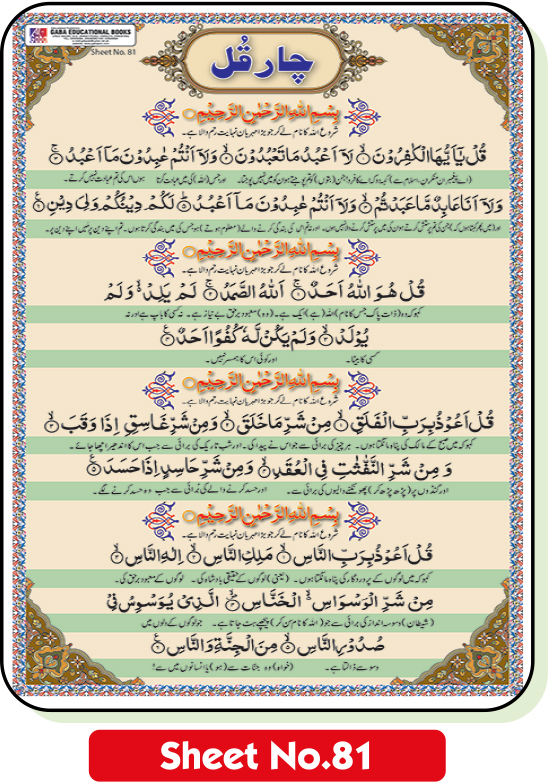 GABA EDUCATIONAL BOOKS
Sheet No. 81
چار قُل
بِسْمِ اللهِ الرَّحْمٰنِ الرَّحِيْمِ
شروع اللہ کا نام لے کر جو بڑا مہربان نہایت رحم والا ہے۔
قُلْ يٰۤاَيُّهَا الْكٰفِرُوْنَ ۙ۱ لَاۤ اَعْبُدُ مَا تَعْبُدُوْنَ ۙ۲ وَلَاۤ اَنْتُمْ عٰبِدُوْنَ مَاۤ اَعْبُدُ ۚ۳
(اے پیغمبر ان منکران اسلام سے) کہہ دو کہ اے کافرو! جن (بتوں) کو تم پوجتے ہو ان کو میں نہیں پوجتا۔ اور جس (اللہ) کی میں عبادت کرتا ہوں اس کی تم عبادت نہیں کرتے۔
وَلَاۤ اَنَا عَابِدٌ مَّا عَبَدْتُّمْ ۙ۴ وَلَاۤ اَنْتُمْ عٰبِدُوْنَ مَاۤ اَعْبُدُ ؕ۵ لَكُمْ دِيْنُكُمْ وَلِيَ دِيْنِ ۶
بِسْمِ اللهِ الرَّحْمٰنِ الرَّحِيْمِ
شروع اللہ کا نام لے کر جو بڑا مہربان نہایت رحم والا ہے۔
قُلْ هُوَ اللهُ اَحَدٌ ۚ۱ اَللهُ الصَّمَدُ ۚ۲ لَمْ يَلِدْ ۙ۬ وَلَمْ
کہو کہ وہ (ذات پاک جس کا نام) اللہ (ہے) ایک ہے۔ (وہ) معبود برحق بے نیاز ہے۔ نہ کسی کا باپ ہے اور نہ
يُوْلَدْ ۙ۳ وَلَمْ يَكُنْ لَّهٗ كُفُوًا اَحَدٌ ۴
کسی کا بیٹا۔ اور کوئی اس کا ہمسر نہیں۔
بِسْمِ اللهِ الرَّحْمٰنِ الرَّحِيْمِ
شروع اللہ کا نام لے کر جو بڑا مہربان نہایت رحم والا ہے۔
قُلْ اَعُوْذُ بِرَبِّ الْفَلَقِ ۙ۱ مِنْ شَرِّ مَا خَلَقَ ۙ۲ وَمِنْ شَرِّ غَاسِقٍ اِذَا وَقَبَ ۙ۳
کہو کہ میں صبح کے مالک کی پناہ مانگتا ہوں۔ ہر چیز کی برائی سے جو اس نے پیدا کی۔ اور شب تاریک کی برائی سے جب اس کا اندھیرا چھا جائے۔
وَمِنْ شَرِّ النَّفّٰثٰتِ فِي الْعُقَدِ ۙ۴ وَمِنْ شَرِّ حَاسِدٍ اِذَا حَسَدَ ۵
اور گنڈوں پر (پڑھ پڑھ کر) پھونکنے والیوں کی برائی سے۔ اور حسد کرنے والے کی برائی سے جب وہ حسد کرنے لگے۔
بِسْمِ اللهِ الرَّحْمٰنِ الرَّحِيْمِ
شروع اللہ کا نام لے کر جو بڑا مہربان نہایت رحم والا ہے۔
قُلْ اَعُوْذُ بِرَبِّ النَّاسِ ۙ۱ مَلِكِ النَّاسِ ۙ۲ اِلٰهِ النَّاسِ ۙ۳
کہو کہ میں لوگوں کے پروردگار کی پناہ مانگتا ہوں۔ (یعنی) لوگوں کے حقیقی بادشاہ کی۔ لوگوں کے معبود برحق کی۔
مِنْ شَرِّ الْوَسْوَاسِ ۙ۬ الْخَنَّاسِ ۙ۴ الَّذِيْ يُوَسْوِسُ فِيْ
(شیطان) وسوسہ انداز کی برائی سے جو (اللہ کا نام سن کر) پیچھے ہٹ جاتا ہے۔ جو لوگوں کے دلوں میں
صُدُوْرِ النَّاسِ ۙ۵ مِنَ الْجِنَّةِ وَالنَّاسِ ۶
وسوسے ڈالتا ہے۔ (خواہ) وہ جنات سے (ہو) یا انسانوں میں سے!
Sheet No.81